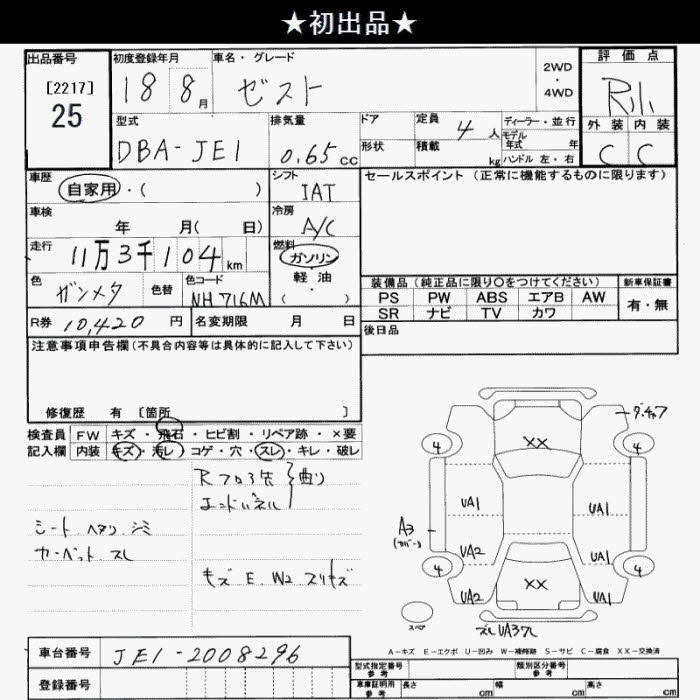 ★初出品★
出品番号
[2217]
25
初度登録年月
18 8月
車名・グレード
ゼスト
2WD
・
4WD
評価点
外装 内装
C C
型式
DBA-JE1
排気量
0.65 cc
ドア
形状
定員
4人
積載
kg
ディーラー・並行
モデル
年式 年
ハンドル 左・右
車歴
自家用・( )
シフト
IAT
セールスポイント(正常に機能するものに限ります)
車検
年 月( 日)
冷房
A/C
走行
11万3千104km
燃料
ガソリン
軽・油
( )
色
ガンメタ
色替
色コード
NH716M
装備品(純正品に限り○をつけてください)
新車保証書
PS PW ABS エアB AW
有・無
SR ナビ TV カワ
R券 10,420円
名変期限 月 日
後日品
注意事項申告欄(不具合内容等は具体的に記入して下さい)
修復歴 有 [箇所 ]
検査員
記入欄
FW キズ・飛石・ヒビ割・リペア跡・×要
内装 キズ・汚レ・コゲ・穴・スレ・キレ・破レ
シート ヘタリ シミ
カーペット スレ
エンドパネル
曲り
キズ E W2 スリキズ
4 4
XX
UA1 UA1
A3
(カバー)
UA2 UA1
4 4
XX
UA2 UA1
スペア
A-キズ E-エクボ U-凹み W-補修跡 S-サビ C-腐食 XX-交換済
車台番号
JE1-2008296
登録番号
型式指定番号
参考
類別区分番号
参考
車庫証明用
参考
長さ cm 幅 cm 高さ cm